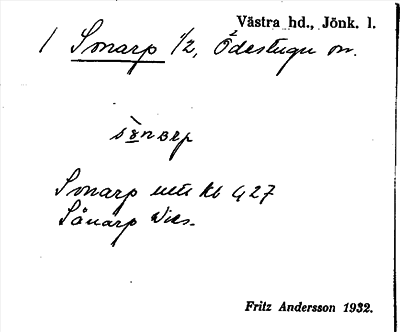 Västra hd., Jönk. l.
/ Sonarp 1/2, Ödestugu sn.
Sonarp
Sånarp Wies.
Fritz Andersson 1932.